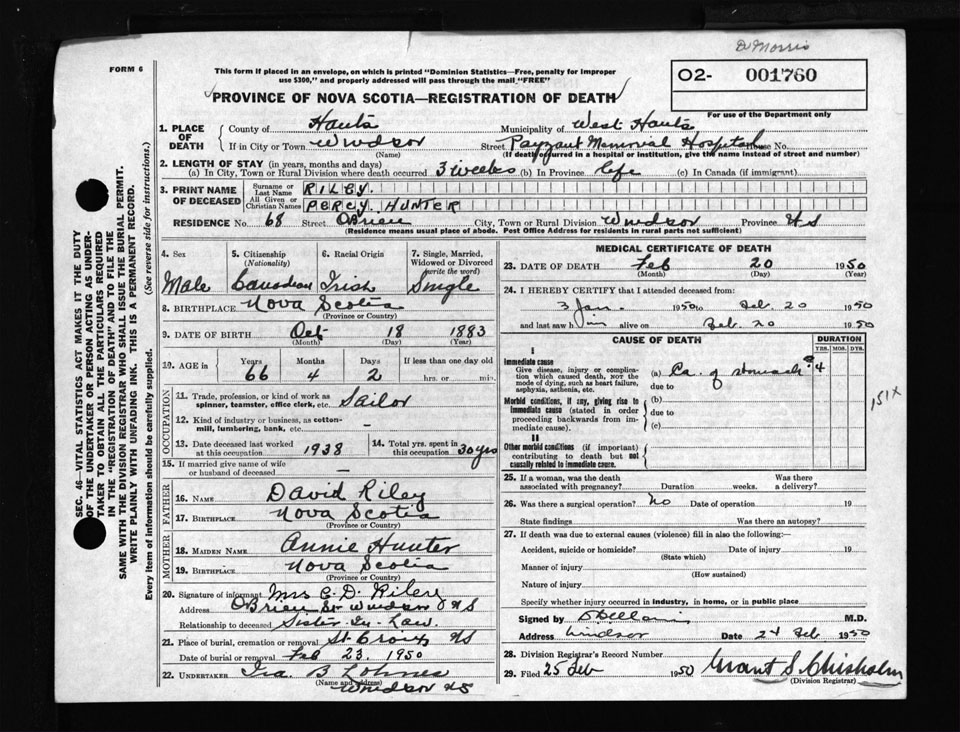 D Morris
FORM 6
This form if placed in an envelope, on which is printed "Dominion Statistics—Free, penalty for improper
use $300," and properly addressed will pass through the mail "FREE"
O2- 001760
PROVINCE OF NOVA SCOTIA—REGISTRATION OF DEATH
For use of the Department only
1. PLACE OF DEATH { County of Hants Municipality of West Hants
If in City or Town Windsor Street Payzant Memorial Hospital House No.
(Name) (If death occurred in a hospital or institution, give the name instead of street and number)
2. LENGTH OF STAY (in years, months and days)
(a) In City, Town or Rural Division where death occurred 3 weeks (b) In Province life (c) In Canada (if immigrant)
3. PRINT NAME OF DECEASED { Surname or Last Name RILEY.
All Given or Christian Names PERCY HUNTER
RESIDENCE No. 68 Street OBrien City, Town or Rural Division Windsor Province NS
(Residence means usual place of abode. Post Office Address for residents in rural parts not sufficient)
4. Sex Male
5. Citizenship (Nationality) Canadian
6. Racial Origin Irish
7. Single, Married, Widowed or Divorced (write the word) Single
8. BIRTHPLACE Nova Scotia
(Province or Country)
9. DATE OF BIRTH Oct 18 1883
(Month) (Day) (Year)
10. AGE in Years 66 Months 4 Days 2 If less than one day old hrs. or min.
OCCUPATION
11. Trade, profession, or kind of work as
spinner, teamster, office clerk, etc. Sailor
12. Kind of industry or business, as cotton-
mill, lumbering, bank, etc. —
13. Date deceased last worked
at this occupation 1938
14. Total yrs. spent in
this occupation 30 yrs
15. If married give name of wife
or husband of deceased —
FATHER
16. NAME David Riley
17. BIRTHPLACE Nova Scotia
(Province or Country)
MOTHER
18. MAIDEN NAME Annie Hunter
19. BIRTHPLACE Nova Scotia
(Province or Country)
20. Signature of informant Mrs C. D. Riley
Address OBrien St Windsor NS
Relationship to deceased Sister-In-Law
21. Place of burial, cremation or removal St Croix NS
Date of burial or removal Feb 23. 1950
22. UNDERTAKER Ira B Lohnes
(Name and Address)
Windsor NS
MEDICAL CERTIFICATE OF DEATH
23. DATE OF DEATH Feb 20 1950
(Month) (Day) (Year)
24. I HEREBY CERTIFY that I attended deceased from:
3 Jan. 1950 to Feb. 20 1950
and last saw him alive on Feb. 20 1950
CAUSE OF DEATH
DURATION
YRS. MOS. DYS.
I
Immediate cause
Give disease, injury or complica-
tion which caused death, NOT the
mode of dying, such as heart failure,
asphyxia, asthenia, etc.
(a) Ca. of stomach ? 4
due to
Morbid conditions, if any, giving rise to
immediate cause (stated in order
proceeding backwards from im-
mediate cause).
(b)
due to
(c)
II
Other morbid conditions (if important)
contributing to death but not
causally related to immediate cause.
151X
25. If a woman, was the death
associated with pregnancy? Duration weeks. Was there a delivery?
26. Was there a surgical operation? No Date of operation 19
State findings Was there an autopsy?
27. If death was due to external causes (violence) fill in also the following:—
Accident, suicide or homicide? Date of injury 19
(State which)
Manner of injury
(How sustained)
Nature of injury
Specify whether injury occurred in industry, in home, or in public place
Signed by M.D.
Address Windsor Date 24 Feb 1950
28. Division Registrar's Record Number
29. Filed 25 Feb 1950 Grant S. Chisholm
(Division Registrar)
SEC. 46—VITAL STATISTICS ACT MAKES IT THE DUTY
OF THE UNDERTAKER OR PERSON ACTING AS UNDER-
TAKER TO OBTAIN ALL THE PARTICULARS REQUIRED
IN THE "REGISTRATION OF DEATH" AND TO FILE THE
SAME WITH THE DIVISION REGISTRAR WHO SHALL ISSUE THE BURIAL PERMIT.
WRITE PLAINLY WITH UNFADING INK. THIS IS A PERMANENT RECORD.
Every item of information should be carefully supplied. (See reverse side for instructions.)